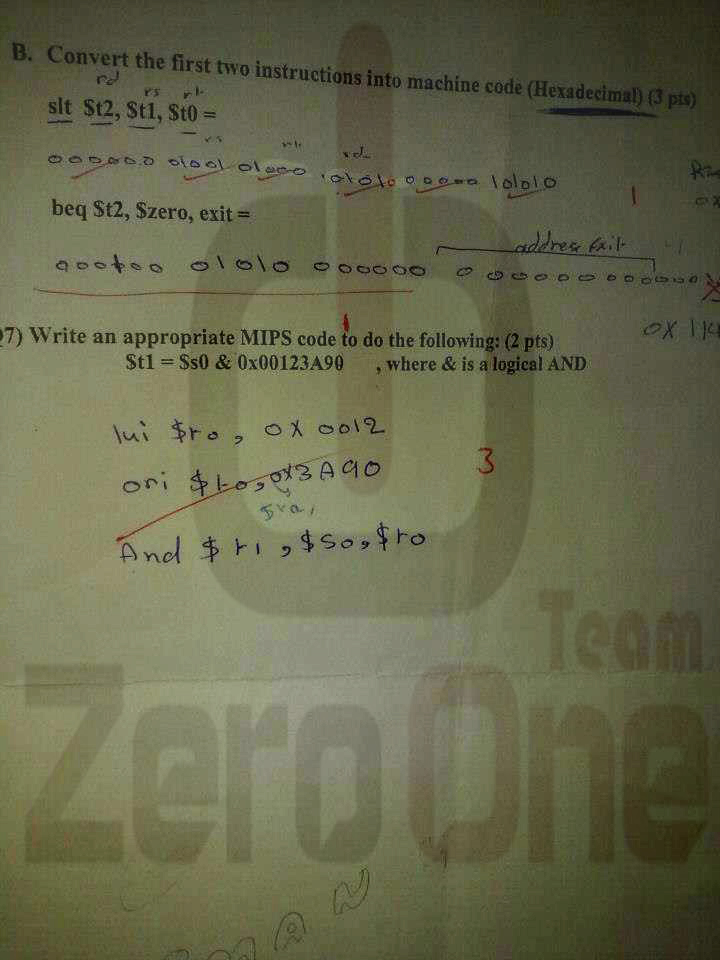 B. Convert the first two instructions into machine code (Hexadecimal) (3 pts)
rd rs rt
slt $t2, $t1, $t0 =
rs rt rd
000000 01001 01000 01010 00000 101010
1
0x
beq $t2, $zero, exit =
address Exit
000100 01010 000000 0 000000 000000
0X114
Q7) Write an appropriate MIPS code to do the following: (2 pts)
1
$t1 = $s0 & 0x00123A90 , where & is a logical AND
lui $t0, 0X0012
ori $t0, 0x3A90
3
And $t1, $S0, $t0
Team
Zero One